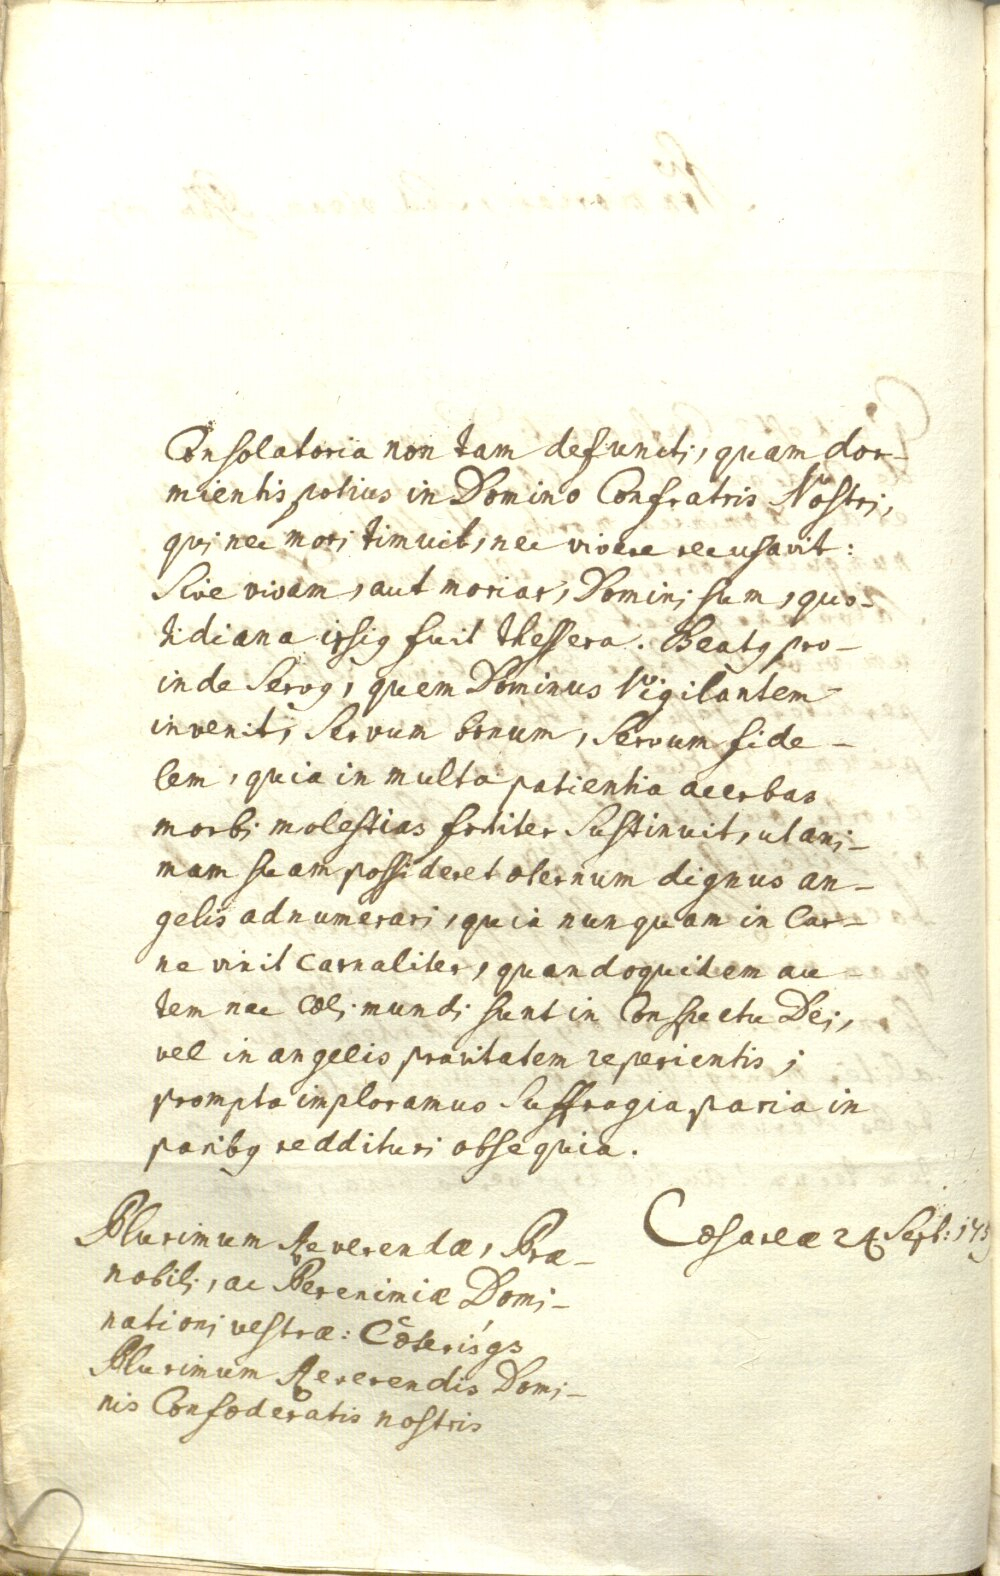 Consolatoria non tam defuncti, quam dor-
mientis potius in Domino Confratris Nostri,
qui nec mori timuit, nec vivere recusavit:
Sive vivam, aut moriar, Domini sum, quo-
tidiana ipsiꝰ fuit thessera. Beatꝰ pro-
inde Servꝰ, quem Dominus Vigilantem
invenit, Servum bonum, Servum fide-
lem, quia in multa patientia acerbas
morbi molestias fortiter Sustinuit, ut ani-
mam suam possideret æternum dignus an-
gelis adnumerari, quia nunquam in Car-
ne vixit carnaliter, quandoquidem au-
tem nec Cæli mundi sunt in Conspectu Dei,
vel in angelis pravitatem reperientis;
prompta imploramus Suffragia, paria in
paribꝰ reddituri obsequia.
Cæsareæ 24 Sept: 175
Plurimum Reverendæ, Præ-
nobili, ac Perenimiæ Domi-
nationi vestræ: Cæterisqs
Plurimum Reverendis Domi-
nis Confoederatis nostris